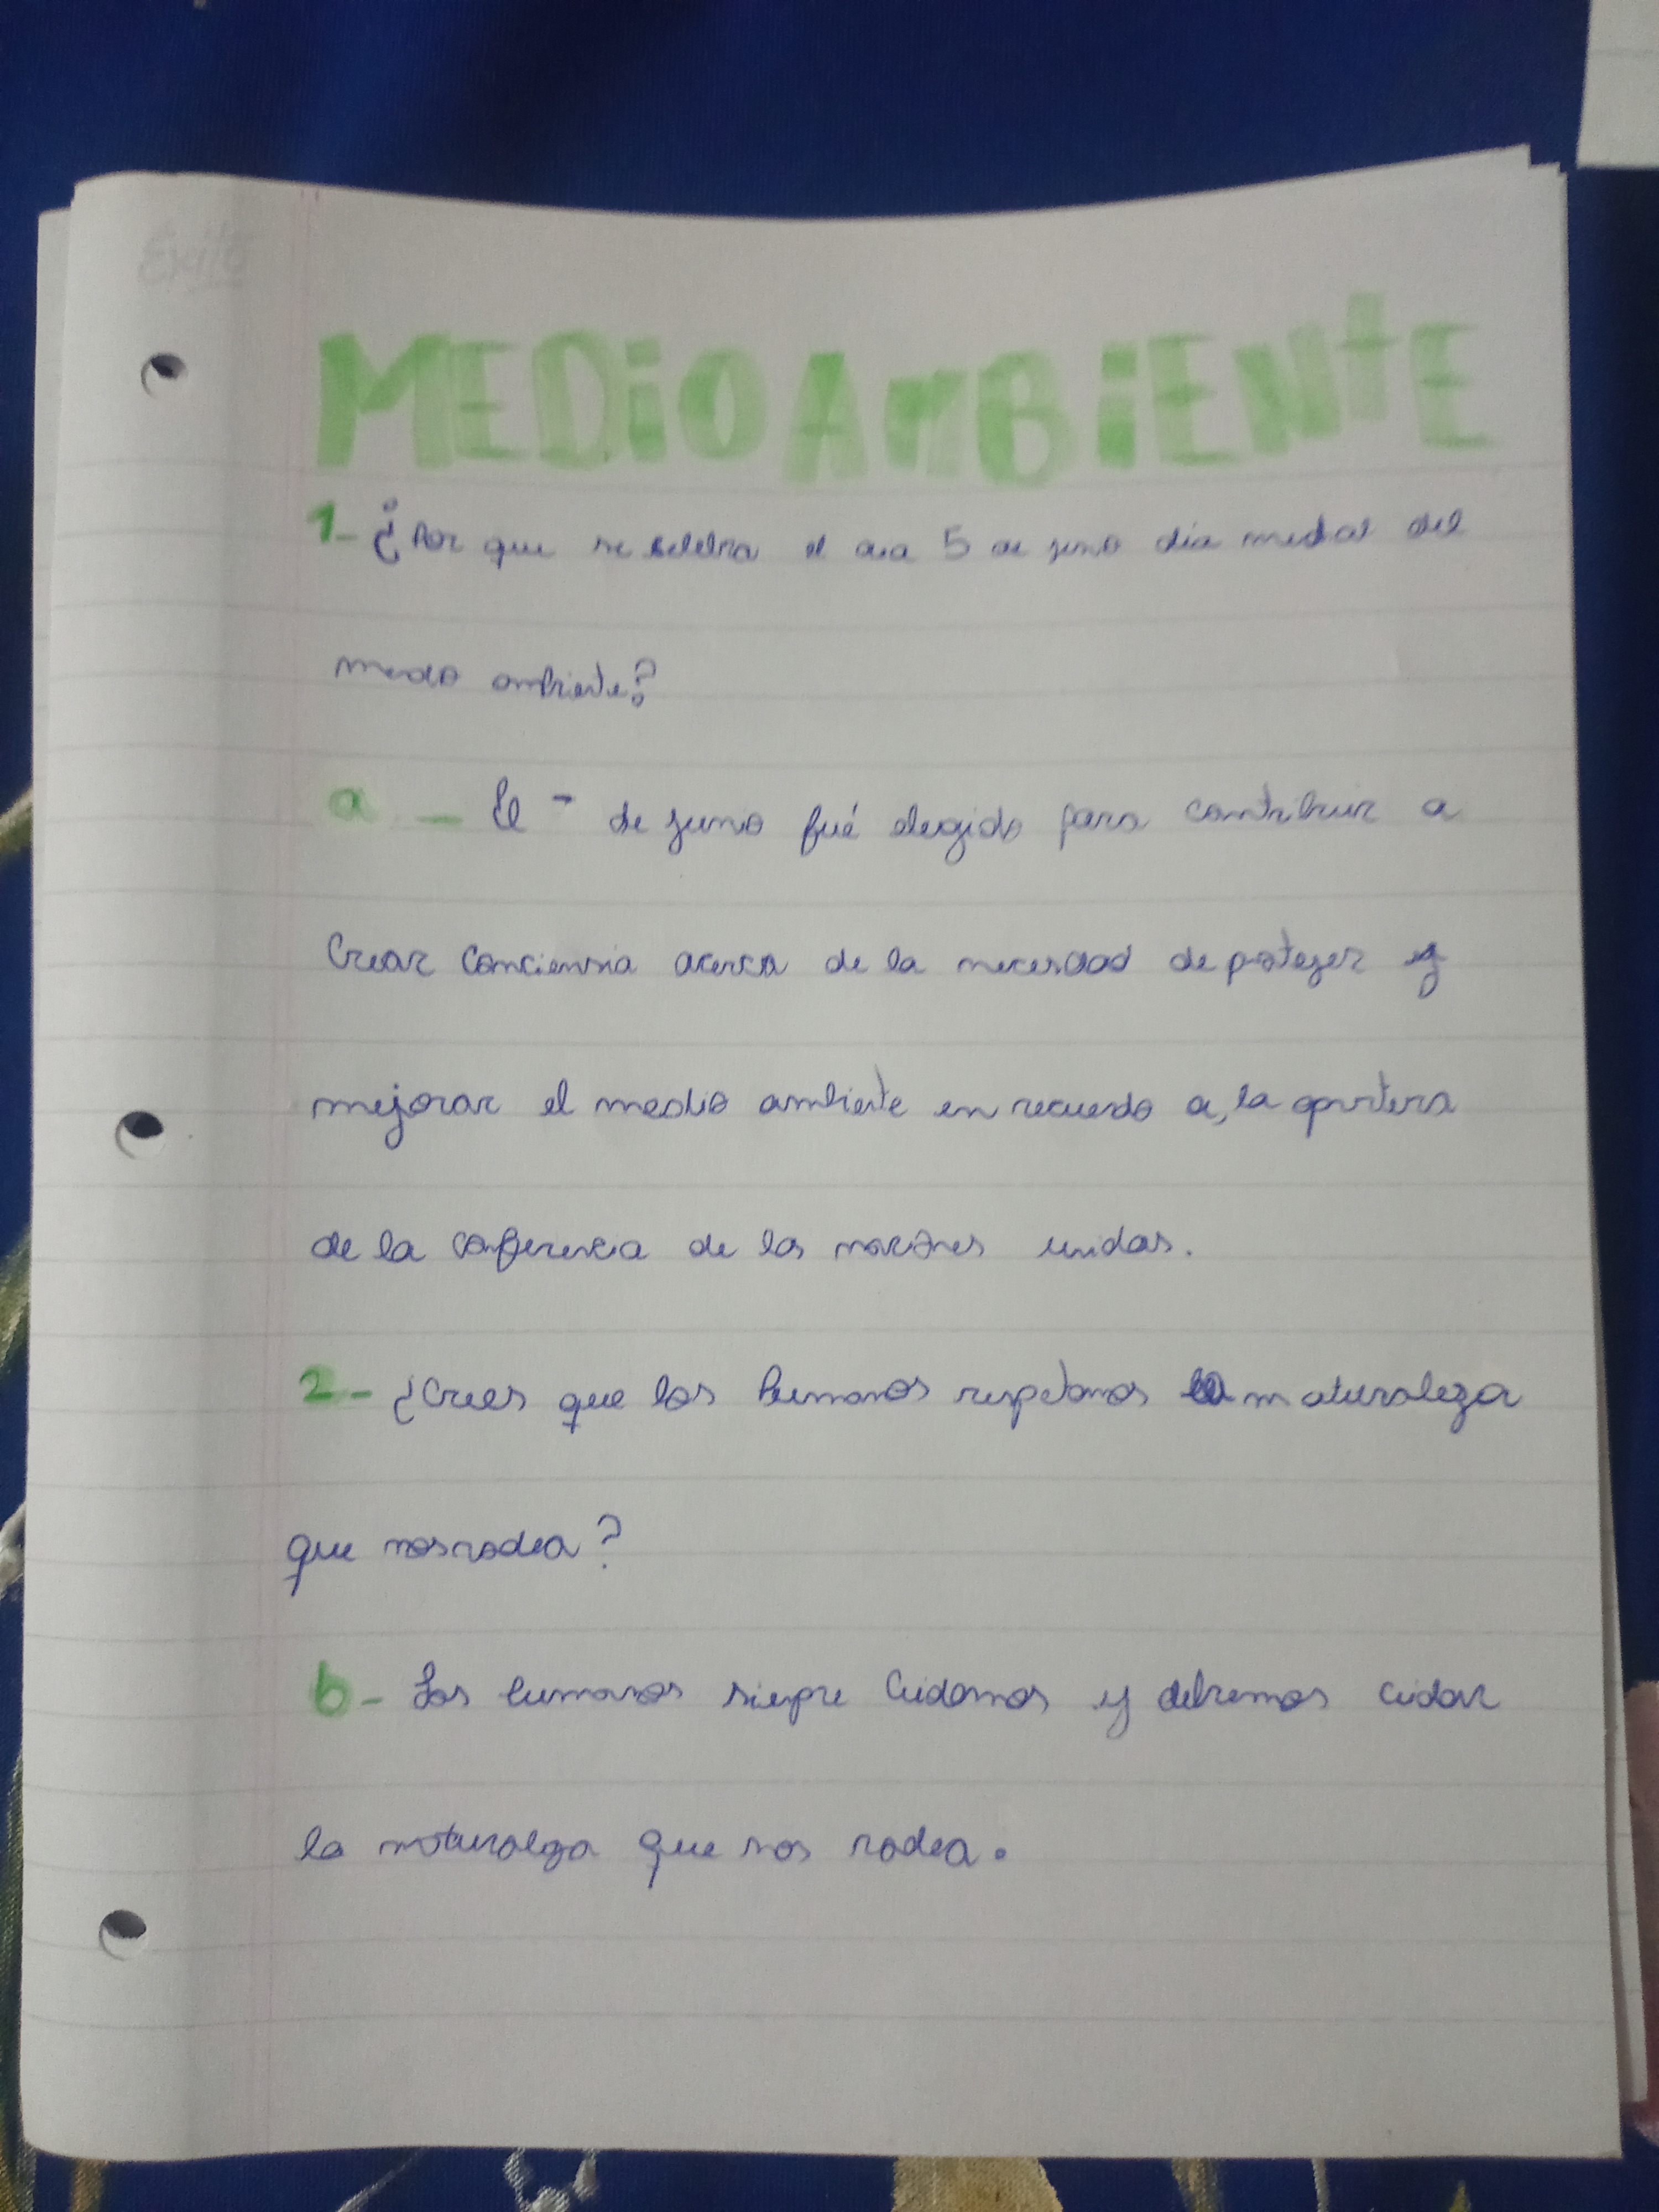 Exito
MEDIO AMBIENTE
1- ¿Por que se celebra el dia 5 de junio día mudial del
medio ambiente?
a - El - de junio fué elegido para contribuir a
Crear conciencia acerca de la necesidad de proteger y
mejorar el medio ambiente en recuerdo a, la
de la conferencia de las naciones unidas.
2- ¿Crees que los humanos respetamos la naturaleza
que nos rodea?
b- Los humanos siempre cuidamos y debremos cuidar
la naturaleza que nos rodea.